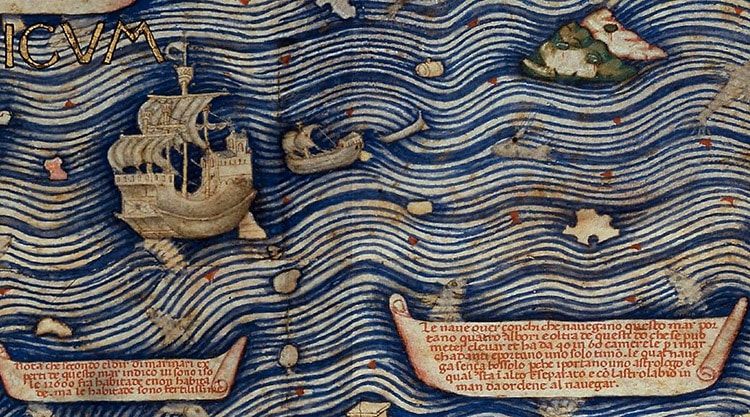 ICVM
Le naue ouer çonchi che nauegano questo mar por
tano quatro albori e oltra de questi do che se può
meter e leuar et ha da 40 in 60 camerele per i mar
chadanti e portano uno solo timō. le qual naue
ga sença bossolo. pche i portano uno astrologo el
qual sta i alto e separato e cō lastrolabio in
man da ordene al nauegar.
Nota che secondo el dir di marinari ex
perti de questo mar indico ui sono iso
le 12600 fra habitade e non habita
de. ma le habitade sono fertilissime